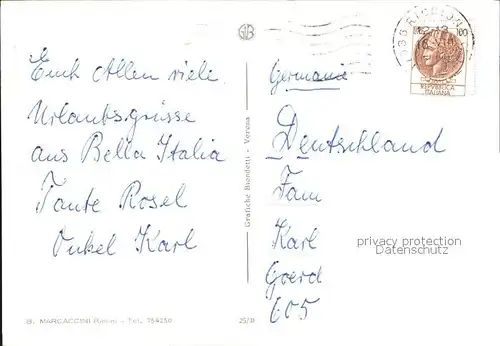 Euch Allen viele
Urlaubsgrüsse
aus Bella Italia
Tante Rosel
Onkel Karl
B. MARCACCINI Rimini - Tel. 754250
25/D
Grafiche Biondetti - Verona
GB
100
REPVBBLICA
ITALIANA
Germanie
Deutschland
Fam
Karl
Goerd
605
privacy protection
Datenschutz